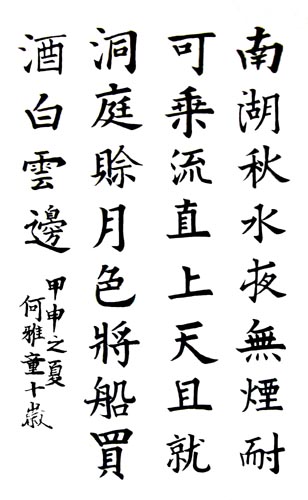 南湖秋水夜無煙耐
可乘流直上天且就
洞庭賒月色將船買
酒白雲邊
甲申之夏
何雅童十歲